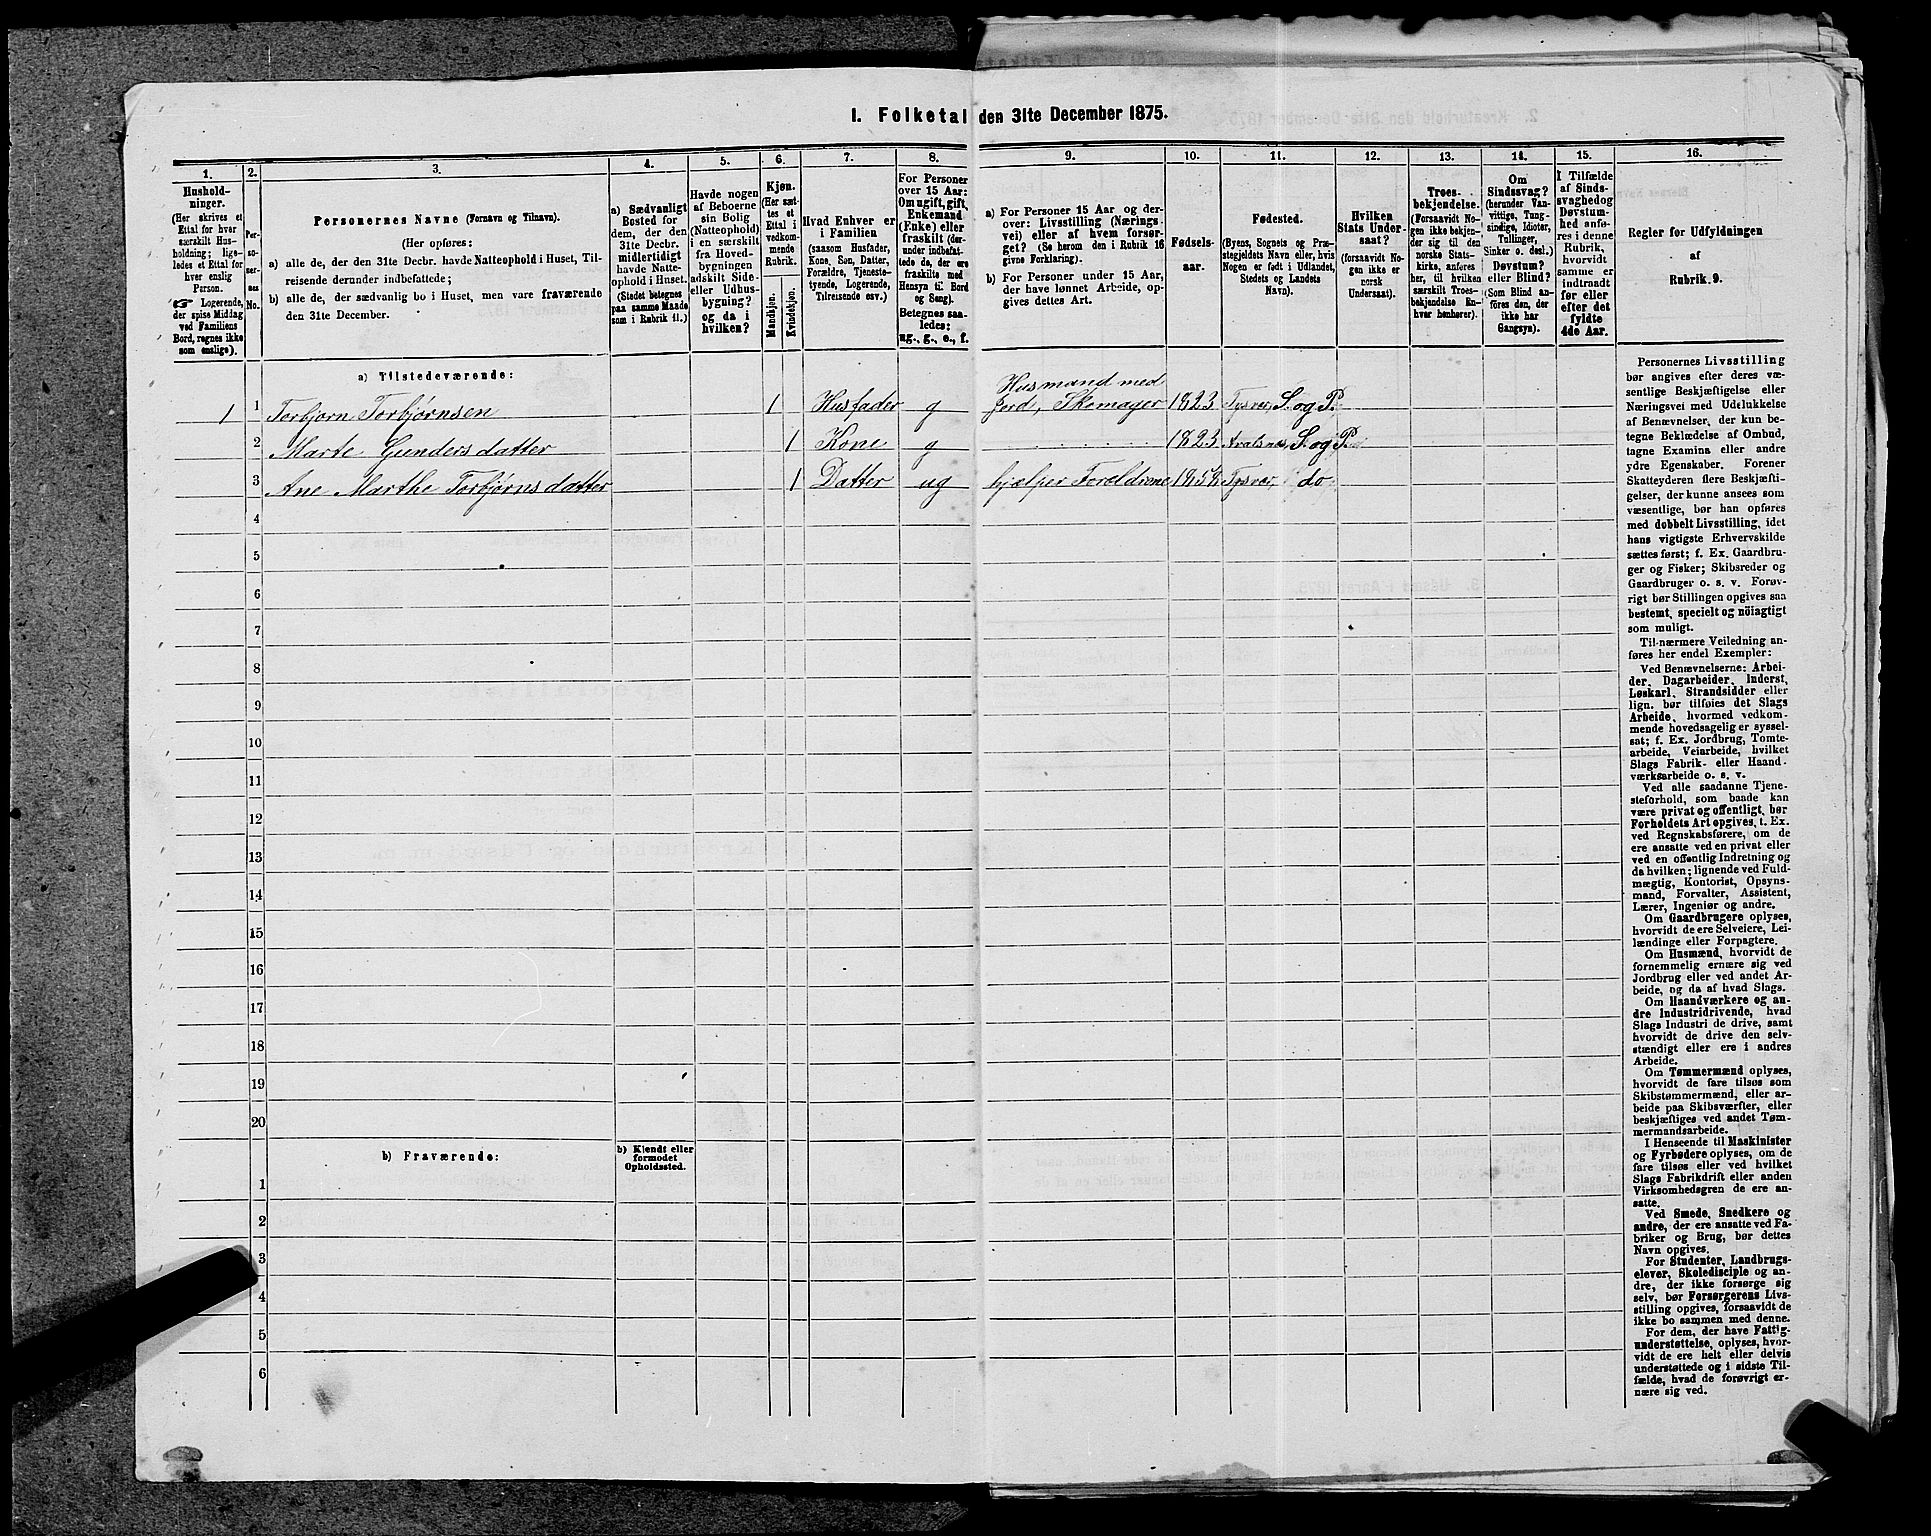 I. Folketal den 31te December 1875.
1.
Hushold-
ninger.
(Her skrives et
Ettal for hver
særskilt Hus-
holdning; lige-
ledes et Ettal for
hver enslig
Person.
Logerende,
der spise Middag
ved Familiens
Bord, regnes ikke
som enslige).
2.
Per-
so-
ner-
nes
No.
3.
Personernes Navne (Fornavn og Tilnavn).
(Her opføres:
a) alle de, der den 31te Decbr. havde Natteophold i Huset, Til-
reisende derunder indbefattede;
b) alle de, der sædvanlig bo i Huset, men vare fraværende
den 31te December.
4.
a) Sædvanligt
Bosted for
dem, der den
31te Decbr.
midlertidigt
havde Natte-
ophold i Huset.
(Stedet betegnes
paa samme Maade
som i Rubrik 11.)
5.
Havde nogen
af Beboerne
sin Bolig
(Natteophold)
i en særskilt
fra Hoved-
bygningen
adskilt Side-
eller Udhus-
bygning?
og da i
hvilken?
6.
Kjøn.
(Her sæt-
tes et
Ettal i
vedkom-
mende
Rubrik.
Mandkjøn.
Kvindekjøn.
7.
Hvad Enhver er
i Familien
(saasom Husfader,
Kone, Søn, Datter,
Forældre, Tjeneste-
tyende, Logerende,
Tilreisende osv.)
8.
For Personer
over 15 Aar:
Om ugift, gift,
Enkemand
(Enke) eller
fraskilt (der-
under indbefat-
tede de, der ere
fraskilte med
Hensyn til Bord
og Seng).
Betegnes saa-
ledes:
ug., g., e., f.
9.
a) For Personer 15 Aar og der-
over: Livsstilling (Nærings-
vei) eller af hvem forsør-
get? (Se herom den i Rubrik 16
givne Forklaring).
b) For Personer under 15 Aar,
der have lønnet Arbeide, op-
gives dettes Art.
10.
Fødsels-
aar.
11.
Fødested.
(Byens, Sognets og Præ-
stegjeldets Navn eller, hvis
Nogen er født i Udlandet,
Stedets og Landets
Navn).
12.
Hvilken
Stats Under-
saat?
(forsaavidt No-
gen ikke er
norsk
Undersaat).
13.
Troes-
bekjendelse.
(Forsaavidt No-
gen ikke bekjen-
der sig til den
norske Stats-
kirke, anføres
her, til hvilken
særskilt Troes-
bekjendelse En-
hver henhører).
14.
Om
Sindssvag?
(herunder Van-
vittige, Tung-
sindige, Idioter,
Tullinger,
Sinker o. desl.)
Døvstum?
eller Blind?
(Som Blind an-
føres den, der
ikke har
Gangsyn).
15.
I Tilfælde
af Sinds-
svaghed og
Døvstum-
hed anfø-
res i denne
Rubrik,
hvorvidt
samme er
indtraadt
før eller
efter det
fyldte
4de Aar.
16.
Regler for Udfyldningen
af
Rubrik 9.
a) Tilstedeværende:
1 1 Torbjørn Torbjørnsen 1 Husfader g Husmand med
Jord, Skomager 1823 Tysvær, S. og P.
2 Marte Gundersdatter 1 Kone g 1823 Avalsnes, S. og P.
3 Ane Marthe Torbjørnsdatter 1 Datter ug hjælper Foreldrene Tysvær, do
4
5
6
7
8
9
10
11
12
13
14
15
16
17
18
19
20
b) Fraværende:
b) Kjendt eller
formodet
Opholdssted.
1
2
3
4
5
6
Personernes Livsstilling
bør angives efter deres væ-
sentlige Beskjæftigelse eller
Næringsvei med Udelukkelse
af Benævnelser, der kun be-
tegne Beklædelse af Ombud,
tagne Examina eller andre
ydre Egenskaber. Forener
Skatteyderen flere Beskjæfti-
gelser, der kunne ansees som
væsentlige, bør han opføres
med dobbelt Livsstilling, idet
hans vigtigste Erhvervskilde
sættes først; f. Ex. Gaardbru-
ger og Fisker; Skibsreder og
Gaardbruger o. s. v. Forøv-
rigt bør Stillingen opgives saa
bestemt, specielt og nöiagtigt
som muligt.
Til nærmere Veiledning an-
føres her endel Exempler:
Ved Benævnelserne: Arbei-
der, Dagarbeider, Inderst,
Løskarl, Strandsidder eller
lign. bør tilføies det Slags
Arbeide, hvormed vedkom-
mende hovedsagelig er syssel-
sat; f. Ex. Jordbrug, Tomte-
arbeide, Veiarbeide, hvilket
Slags Fabrik- eller Haand-
værksarbeide o. s. v.
Ved alle saadanne Tjene-
steforhold, som baade kan
være privat og offentligt, bør
Forholdets Art opgives, t. Ex.
ved Regnskabsførere, om de
ere ansatte ved en privat eller
ved en offentlig Indretning og
da hvilken; lignende ved Fuld-
mægtig, Kontorist, Opsyns-
mand, Forvalter, Assistent,
Lærer, Ingeniør og andre.
Om Gaardbrugere oplyses,
hvorvidt de ere Selveiere, Lei-
lændinge eller Forpagtere.
Om Husmænd, hvorvidt de
fornemmelig ernære sig ved
Jordbrug eller ved andet Ar-
beide, og da af hvad Slags.
Om Haandværkere og an-
dre Industridrivende, hvad
Slags Industri de drive, samt
hvorvidt de drive den selv-
stændigt eller ere i andres
Arbeide.
Om Tømmermænd oplyses,
hvorvidt de fare tilsøs som
Skibstømmermænd, eller ar-
beide paa Skibsværfter, eller
beskjæftiges ved andet Tøm-
mermandsarbeide.
I Henseende til Maskinister
og Fyrbødere oplyses, om de
fare tilsøs eller ved hvilket
Slags Fabrikdrift eller anden
Virksomhedsgren de ere an-
satte.
Ved Smede, Snedkere og
andre, der ere ansatte ved Fa-
briker og Brug, bør dettes
Navn opgives.
For Studenter, Landbrugs-
elever, Skoledisciple og an-
dre, der ikke forsørge sig
selv, bør Forsørgerens Livs-
stilling opgives, forsaavidt de
ikke bo sammen med denne.
For dem, der have Fattig-
understøttelse, oplyses, hvor-
vidt de ere helt eller delvis
understøttede og i sidste Til-
fælde, hvad de forøvrigt er-
nære sig ved.